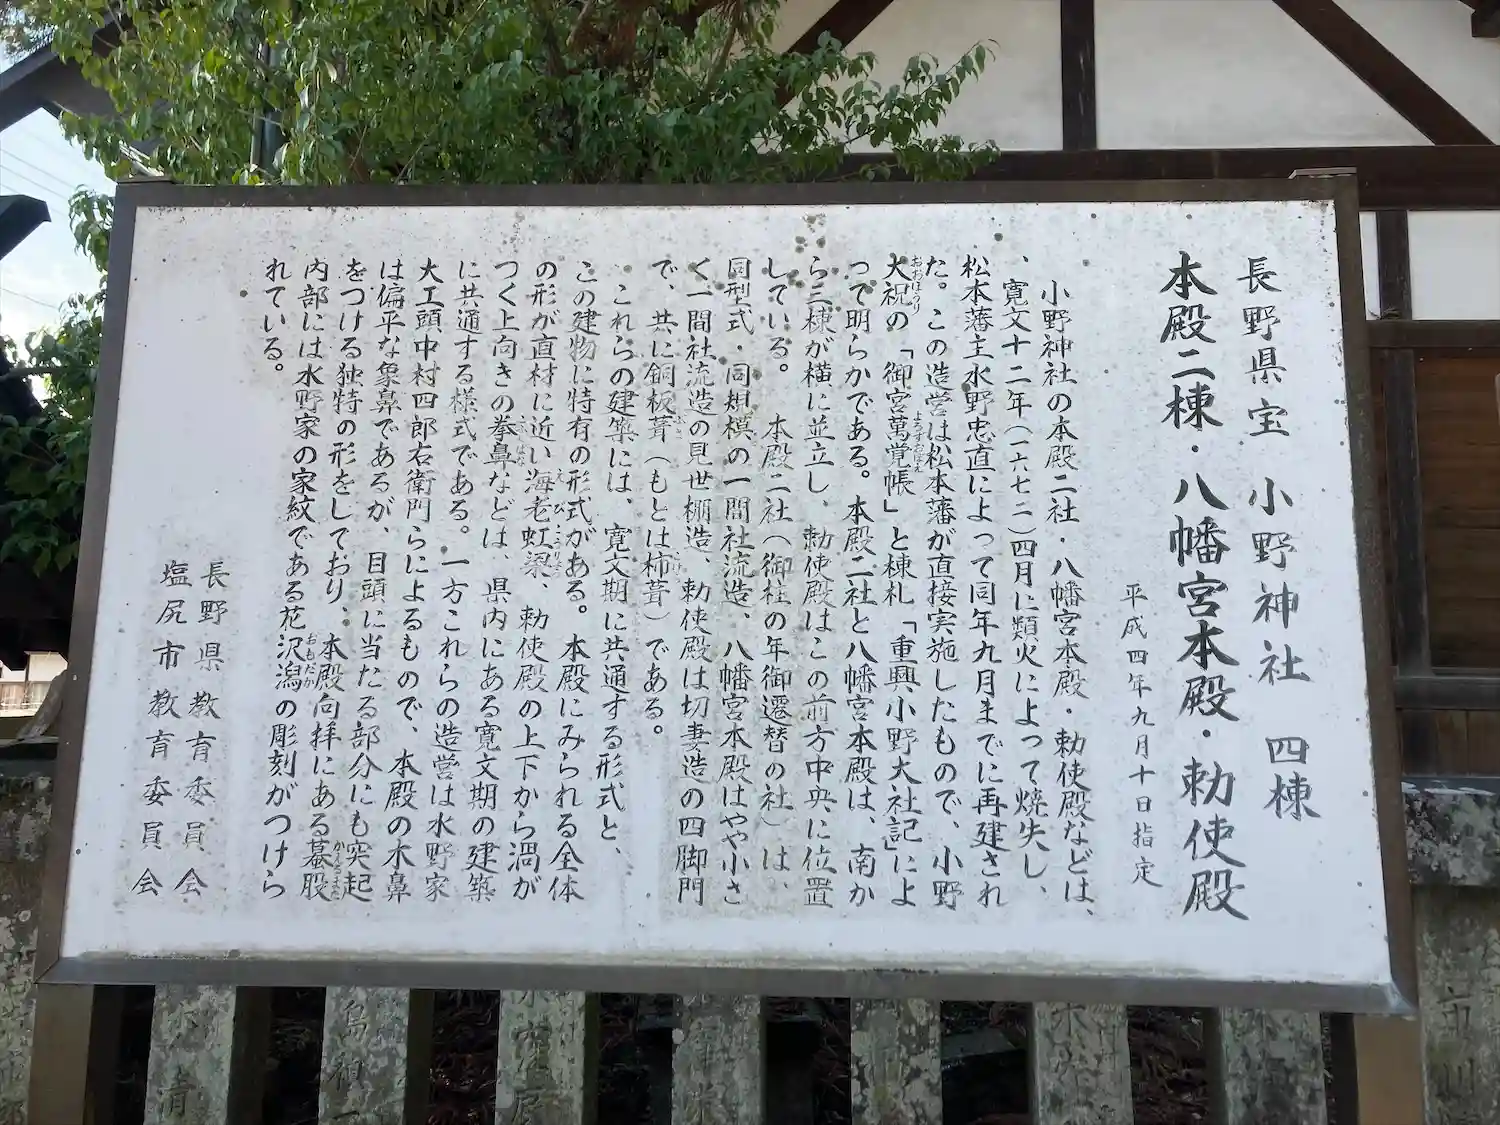 長野県宝 小野神社 四棟
本殿二棟・八幡宮本殿・勅使殿
平成四年九月十日指定
小野神社の本殿二社・八幡宮本殿・勅使殿などは、
、寛文十二年(一六七二)四月に類火によって焼失し、
松本藩主水野忠直によって同年九月までに再建され
た。この造営は松本藩が直接実施したもので、小野
大祝の「御宮萬覚帳」と棟札「重興小野大社記」によ
って明らかである。本殿二社と八幡宮本殿は、南か
ら三棟が横に並立し、勅使殿はこの前方中央に位置
している。 本殿二社(御柱の年御遷替の社)は、
同型式・同規模の一間社流造、八幡宮本殿はやや小さ
く一間社流造の見世棚造、勅使殿は切妻造の四脚門
で、共に銅板葺(もとは杮葺)である。
これらの建築には、寛文期に共通する形式と、
この建物に特有の形式がある。本殿にみられる全体
の形が直材に近い海老虹梁、勅使殿の上下から渦が
つく上向きの拳鼻などは、県内にある寛文期の建築
に共通する様式である。一方これらの造営は水野家
大工頭中村四郎右衛門らによるもので、本殿の木鼻
は偏平な象鼻であるが、目頭に当たる部分にも突起
をつける独特の形をしており、本殿向拝にある蟇股
内部には水野家の家紋である花沢潟の彫刻がつけら
れている。
長野県教育委員会
塩尻市教育委員会